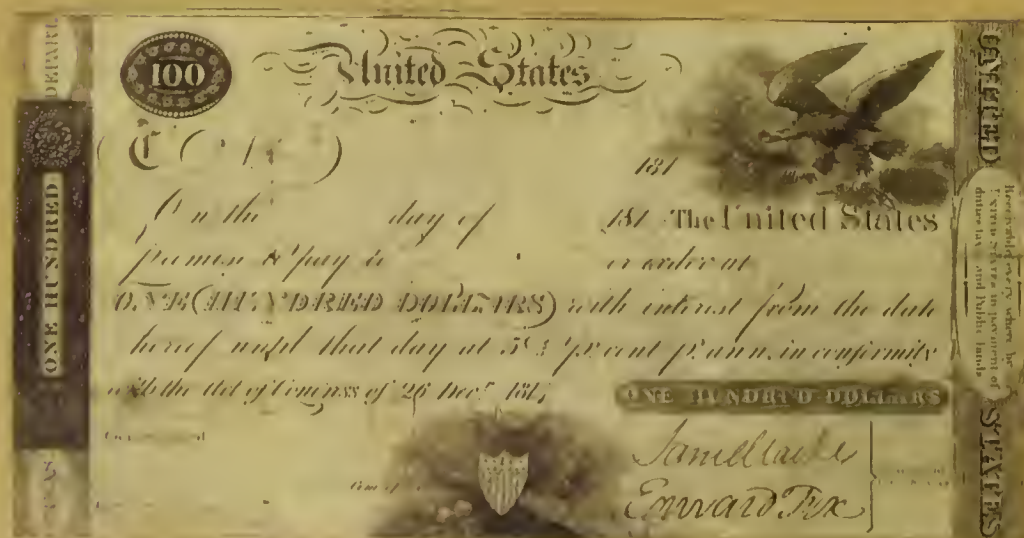 100
United States
181
On the day of 181 The United States
promise to pay to or order at
ONE (HUNDRED DOLLARS) with interest from the date
hereof until that day at 5 2/5 p.r cent p.r ann. in conformity
with the Act of Congress of 26 Decr. 181
ONE HUNDRED DOLLARS
Edward Fox
ONE HUNDRED
UNITED
STATES
Receivable every where by
United States in payment of
duties taxes and Public Lands